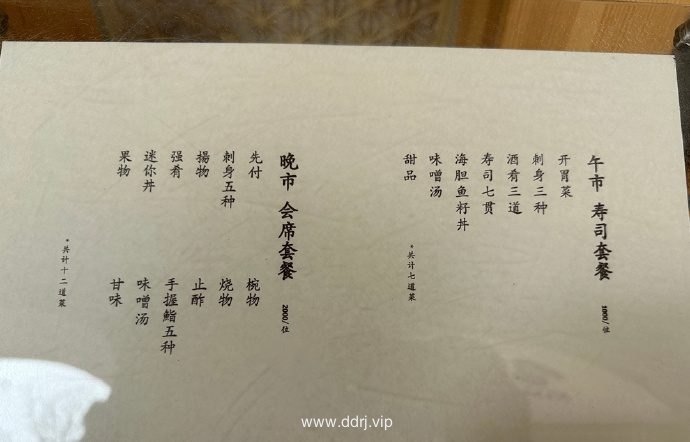 午市 寿司套餐 1000/位
开胃菜
刺身三种
酒肴三道
寿司七贯
海胆鱼籽丼
味噌汤
甜品
*共计七道菜
晚市 会席套餐 2000/位
先付
椀物
刺身五种
烧物
揚物
止酢
强肴
手握鮨五种
迷你丼
味噌汤
果物
甘味
*共计十二道菜
www.ddrj.vip